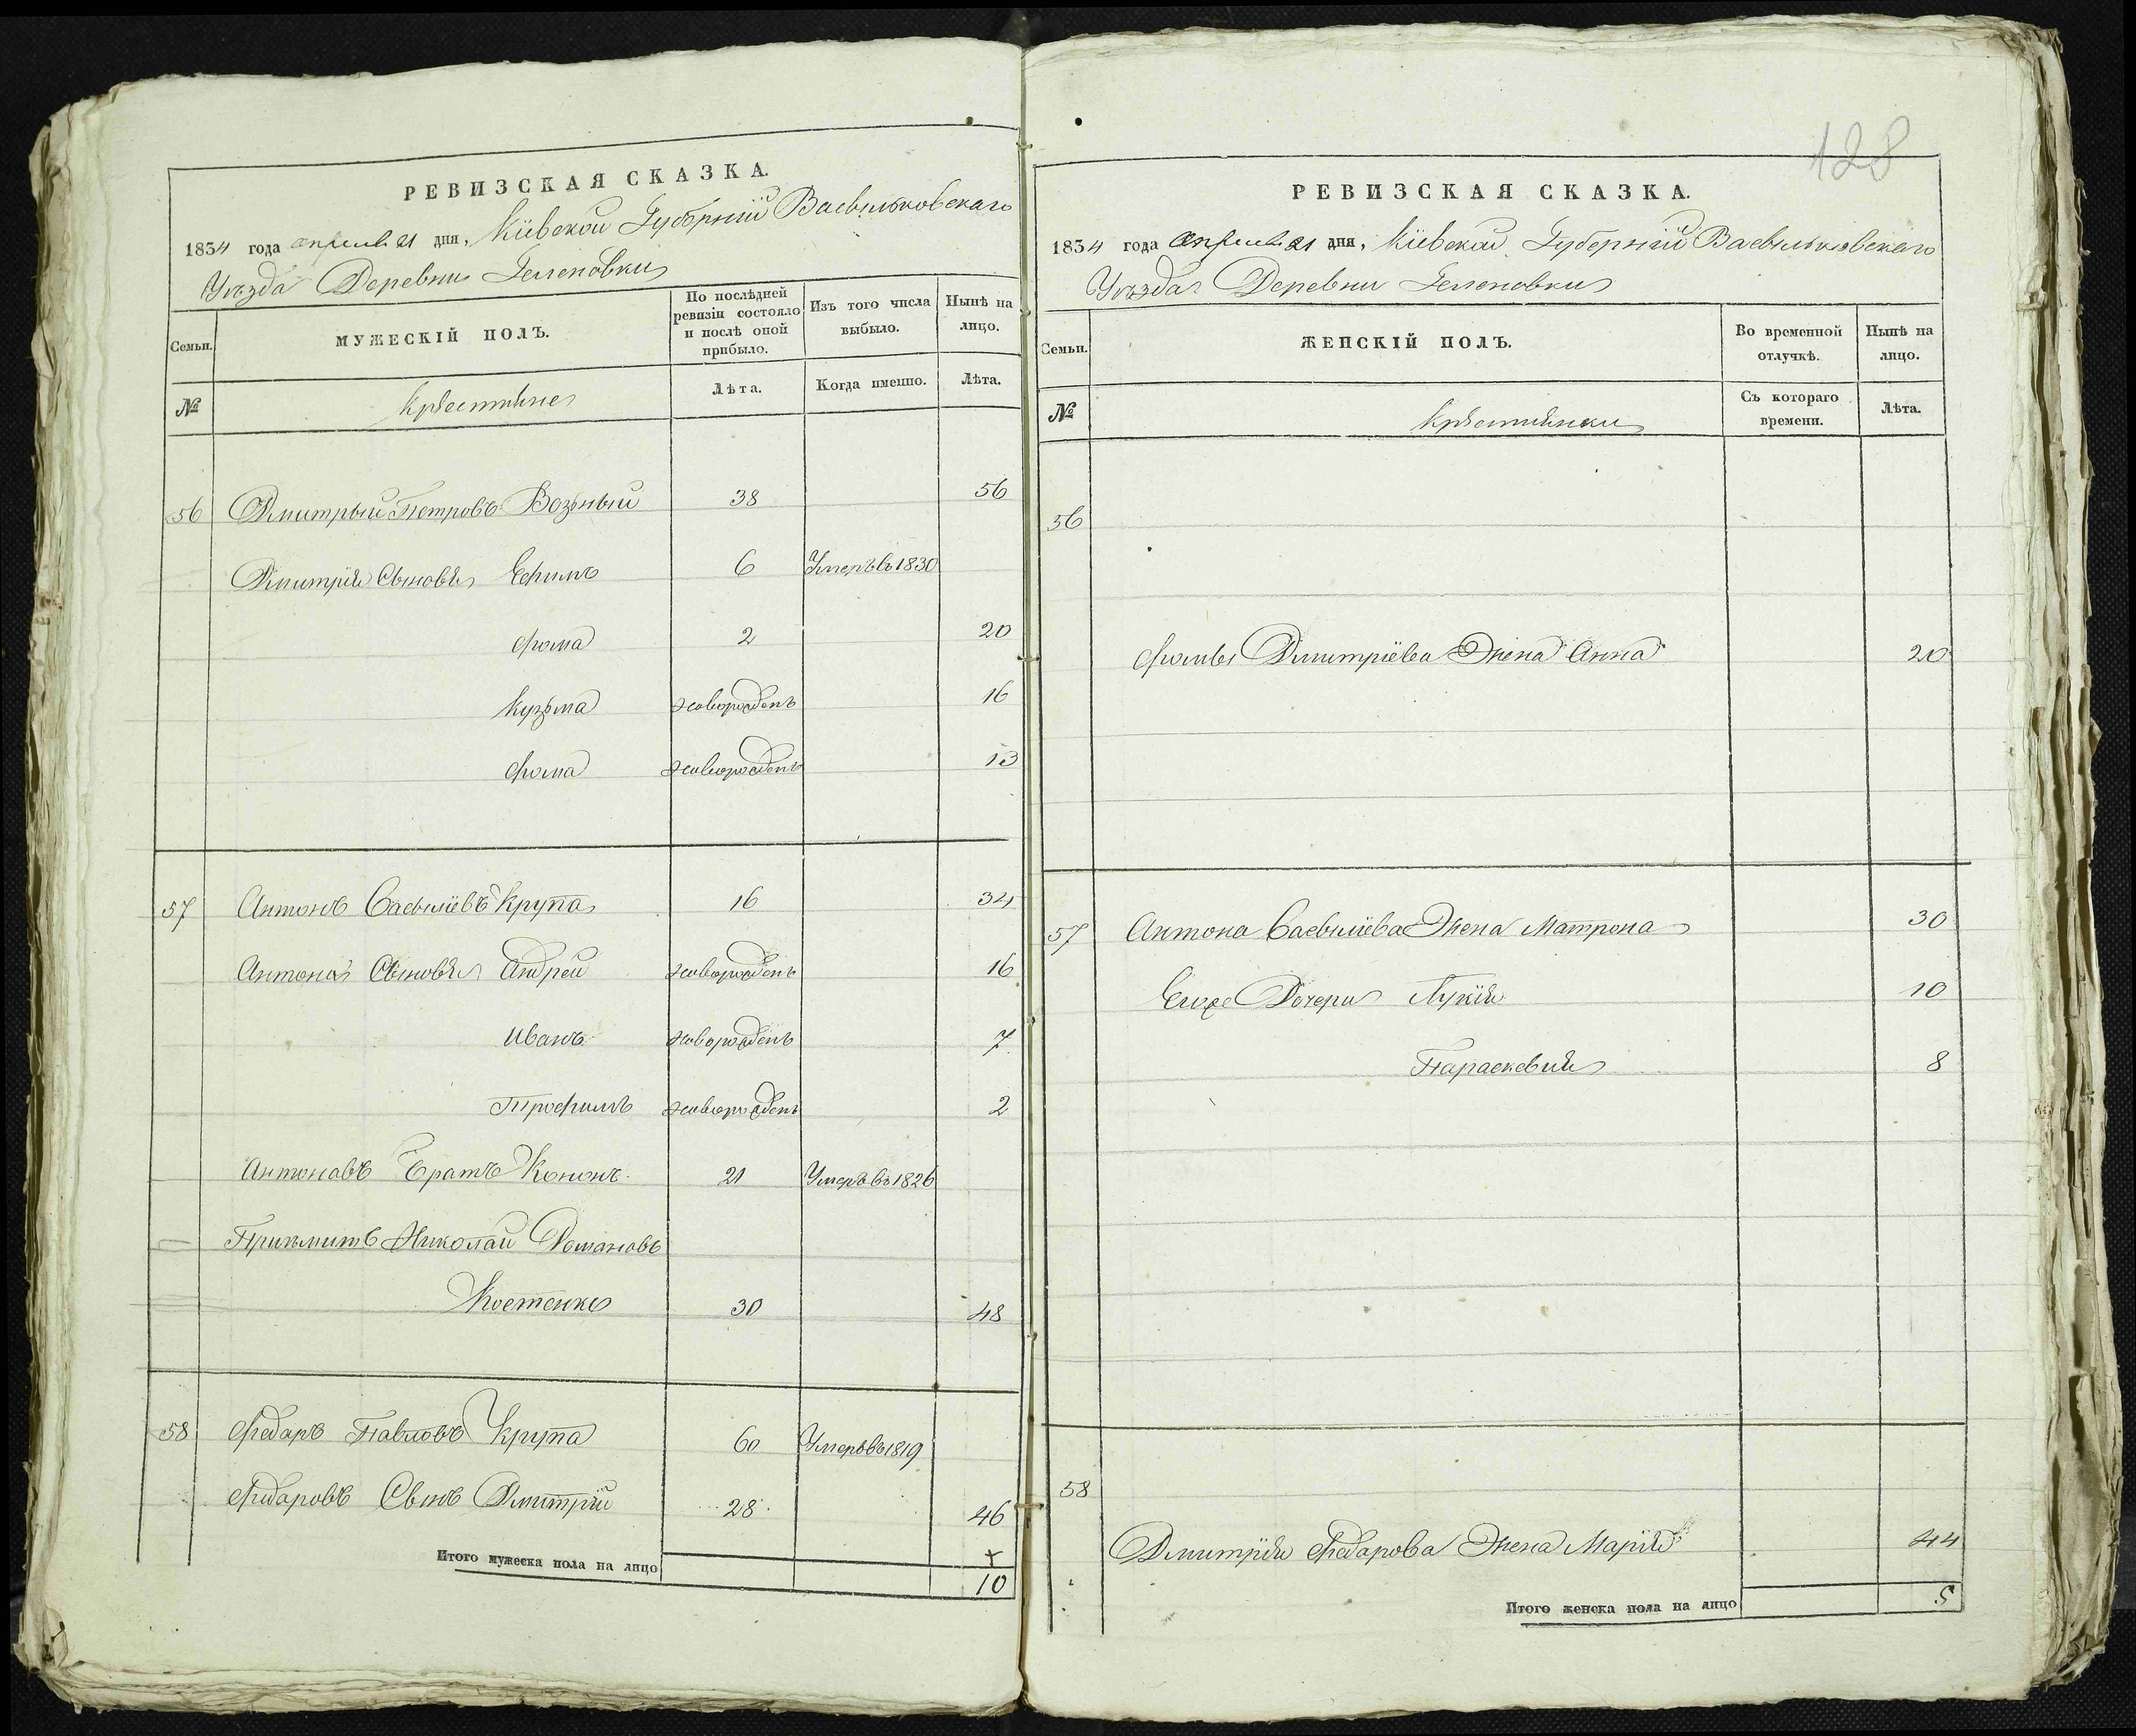 128
РЕВИЗСКАЯ СКАЗКА.
1834 года апреля 21 дня, Кіевской Губерніи Васильковскаго
Уѣзда Деревни Гелиновки
Семьи.
МУЖЕСКІЙ ПОЛЪ.
По послѣдней ревизіи состояло и послѣ оной прибыло.
Изъ того числа выбыло.
Нынѣ на лицо.
№
Крестяне
Лѣта.
Когда именно.
Лѣта.
56 Дмитрый Петровъ Возный 38 56
Дмитрія Сыновья Ефимъ 6 Умеръ въ 1830
Фома 2 20
Кузьма новорожденъ 16
Фома новорожденъ 13
57 Антонъ Васильевъ Крупа 16 34
Антона Сыновья Андрей новорожденъ 16
Иванъ новорожденъ 7
Трофимъ новорожденъ 2
Антоновъ Братъ Кононъ 21 Умеръ въ 1826
Приймитъ Николай Романовъ
Костенко 30 48
58 Федоръ Павловъ Крупа 60 Умеръ въ 1819
Федоровъ Сынъ Дмитрій 28 46
Итого мужеска пола на лицо 10
РЕВИЗСКАЯ СКАЗКА.
1834 года апреля 21 дня, Кіевской Губерніи Васильковскаго
Уѣзда Деревни Гелиновки
Семьи.
ЖЕНСКІЙ ПОЛЪ.
Во временной отлучкѣ.
Нынѣ на лицо.
№
Крестянки
Съ котораго времени.
Лѣта.
56
Фомы Дмитріева Жена Анна 20
57 Антона Васильева Жена Матрона 30
Егоже Дочери Лукія 10
Параскевия 8
58
Дмитрія Федорова Жена Марія 44
Итого женска пола на лицо 5